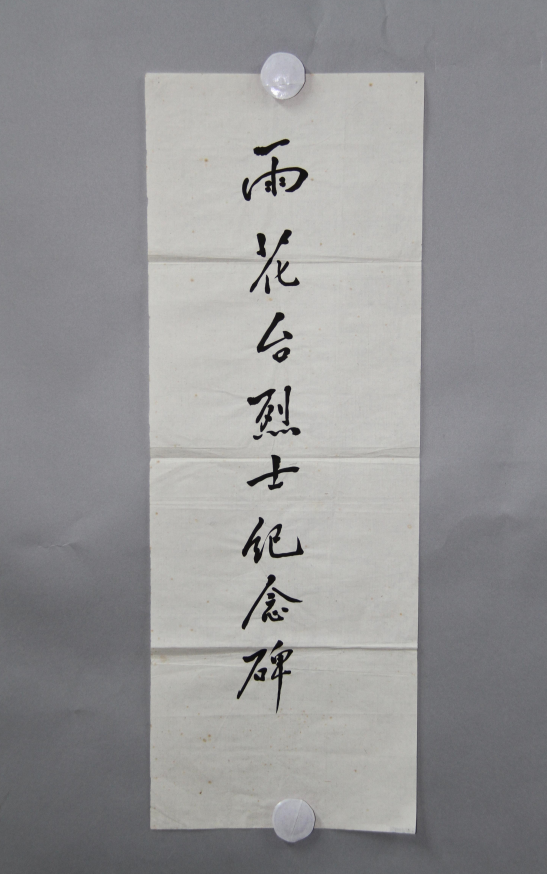 雨花台烈士纪念碑